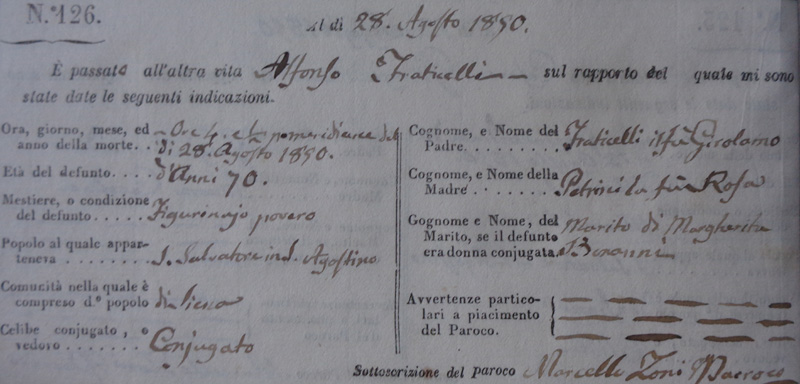 N.º 126.
Al dì 28. Agosto 1850.
È passato all'altra vita Alfonso Fraticelli — sul rapporto del quale mi sono
state date le seguenti indicazioni.
Ora, giorno, mese, ed
anno della morte. . Ore 4. e ½ pomeridiane del
dì 28. Agosto 1850.
Età del defunto. . . . . d'Anni 70.
Mestiere, o condizione
del defunto . . . . . Figurinajo povero
Popolo al quale appar-
teneva . . . . . . . . S. Salvatore in S. Agostino
Comunità nella quale è
compreso d.º popolo di Siena
Celibe conjugato, o
vedovo . . . . . . . Conjugato
Cognome, e Nome del
Padre. . . . . . . . . Fraticelli il fù Girolamo
Cognome, e Nome della
Madre . . . . . . . Petrini la fù Rosa
Gognome e Nome, del
Marito, se il defunto
era donna conjugata. Marito di Margherita
Avvertenze partico-
lari a piacimento
del Paroco.
Sottoscrizione del paroco Marcello Toni Parroco